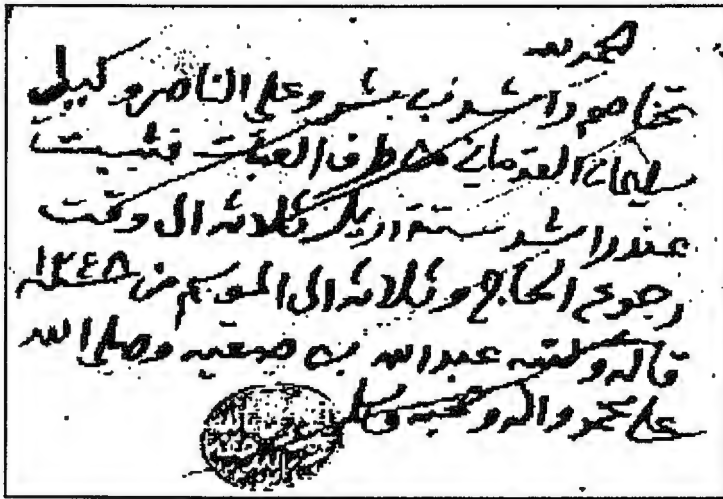 الحمد لله
تخاصم راشد بن بشر وعلي الناصر وكيلي
سليمان العثماني من طرف العبات فثبت
عند راشد ستة اريل ثلاثه الى وقت
رجوع الحاج وثلاثه الى الموسم من سنة ١٢٤٨
قاله وكتبه عبدالله بن صعقيه وصلى الله
على محمد واله وصحبه وسلم